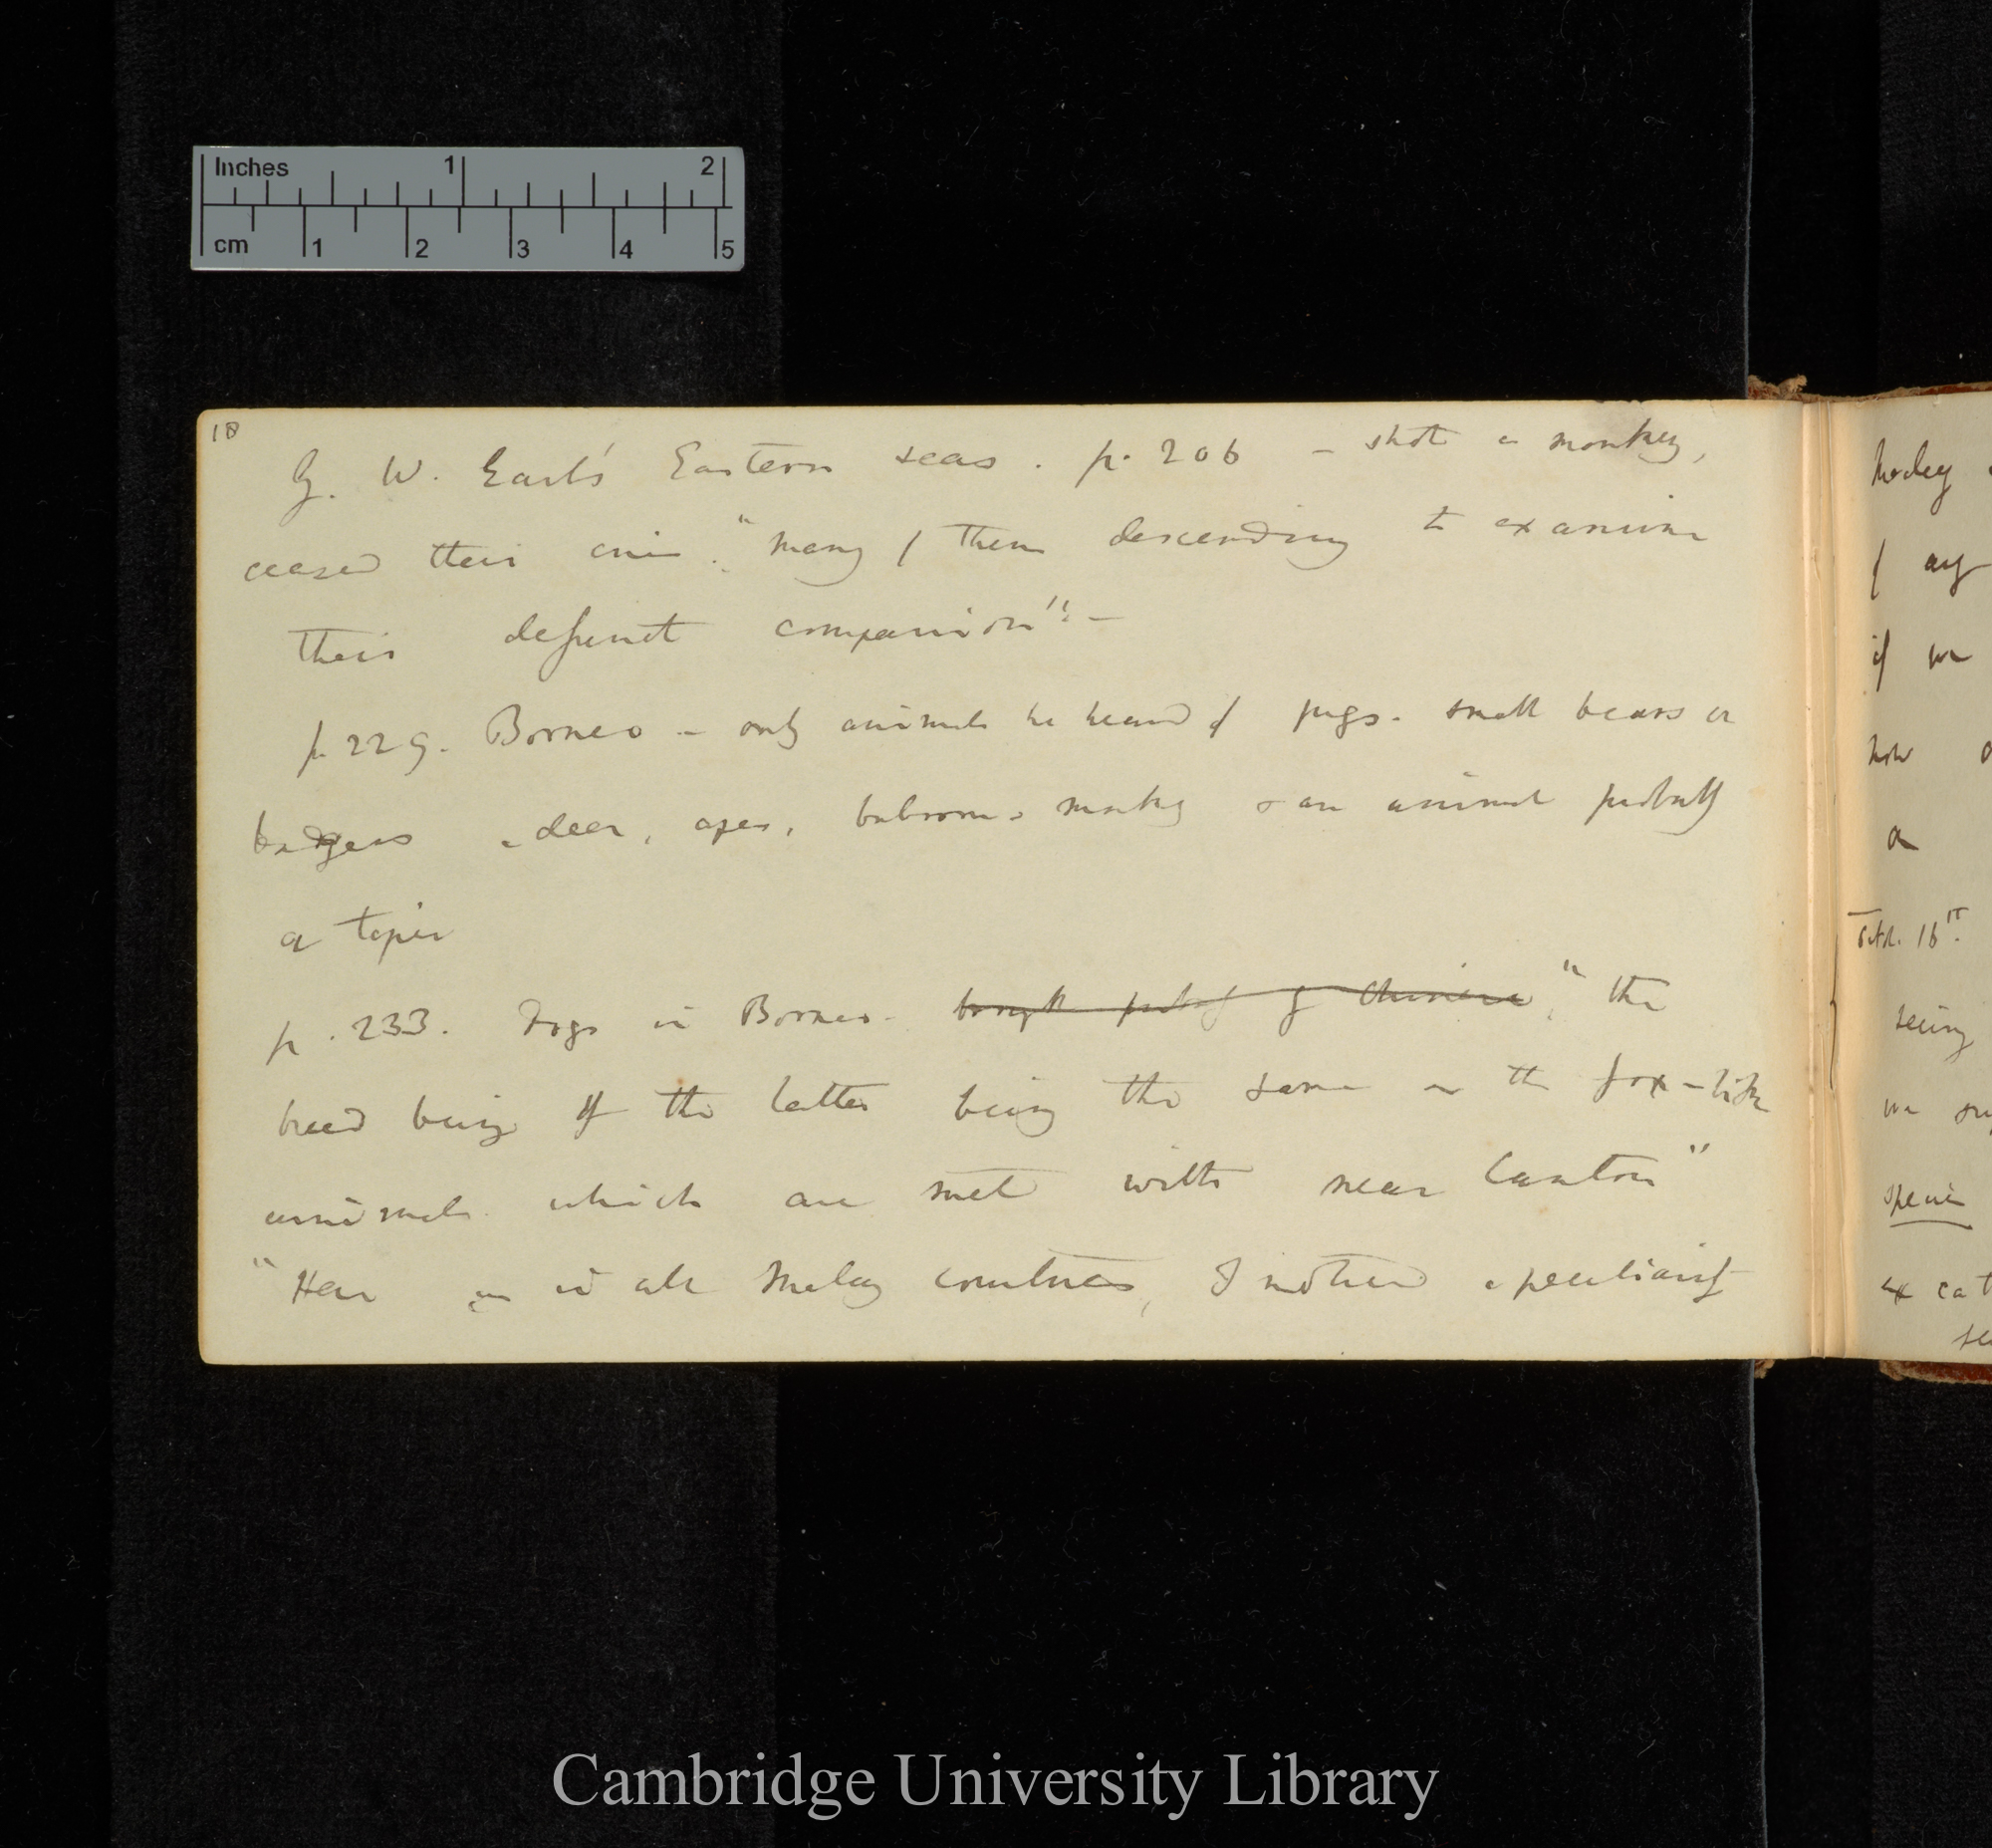 Inches 1 2
cm 1 2 3 4 5
18
G. W. Earl's Eastern seas. p. 206 — shot a monkey,
ceased their cries. "many of them descending to examine
their defunct companion". —
p 229. Borneo — only animals he heard of pigs. small bears or
badgers & deer, apes, baboons monkey & an animal probably
a tapir
p. 233. Dogs in Borneo. brought probably by Chinese, "the
breed being of the latter being the same as the fox-like
animals which are met with near Canton"
"Here as in all Malay countries, I noticed a peculiarity
if we
how
a
Octob. 16th.
seeing
species
Cambridge University Library